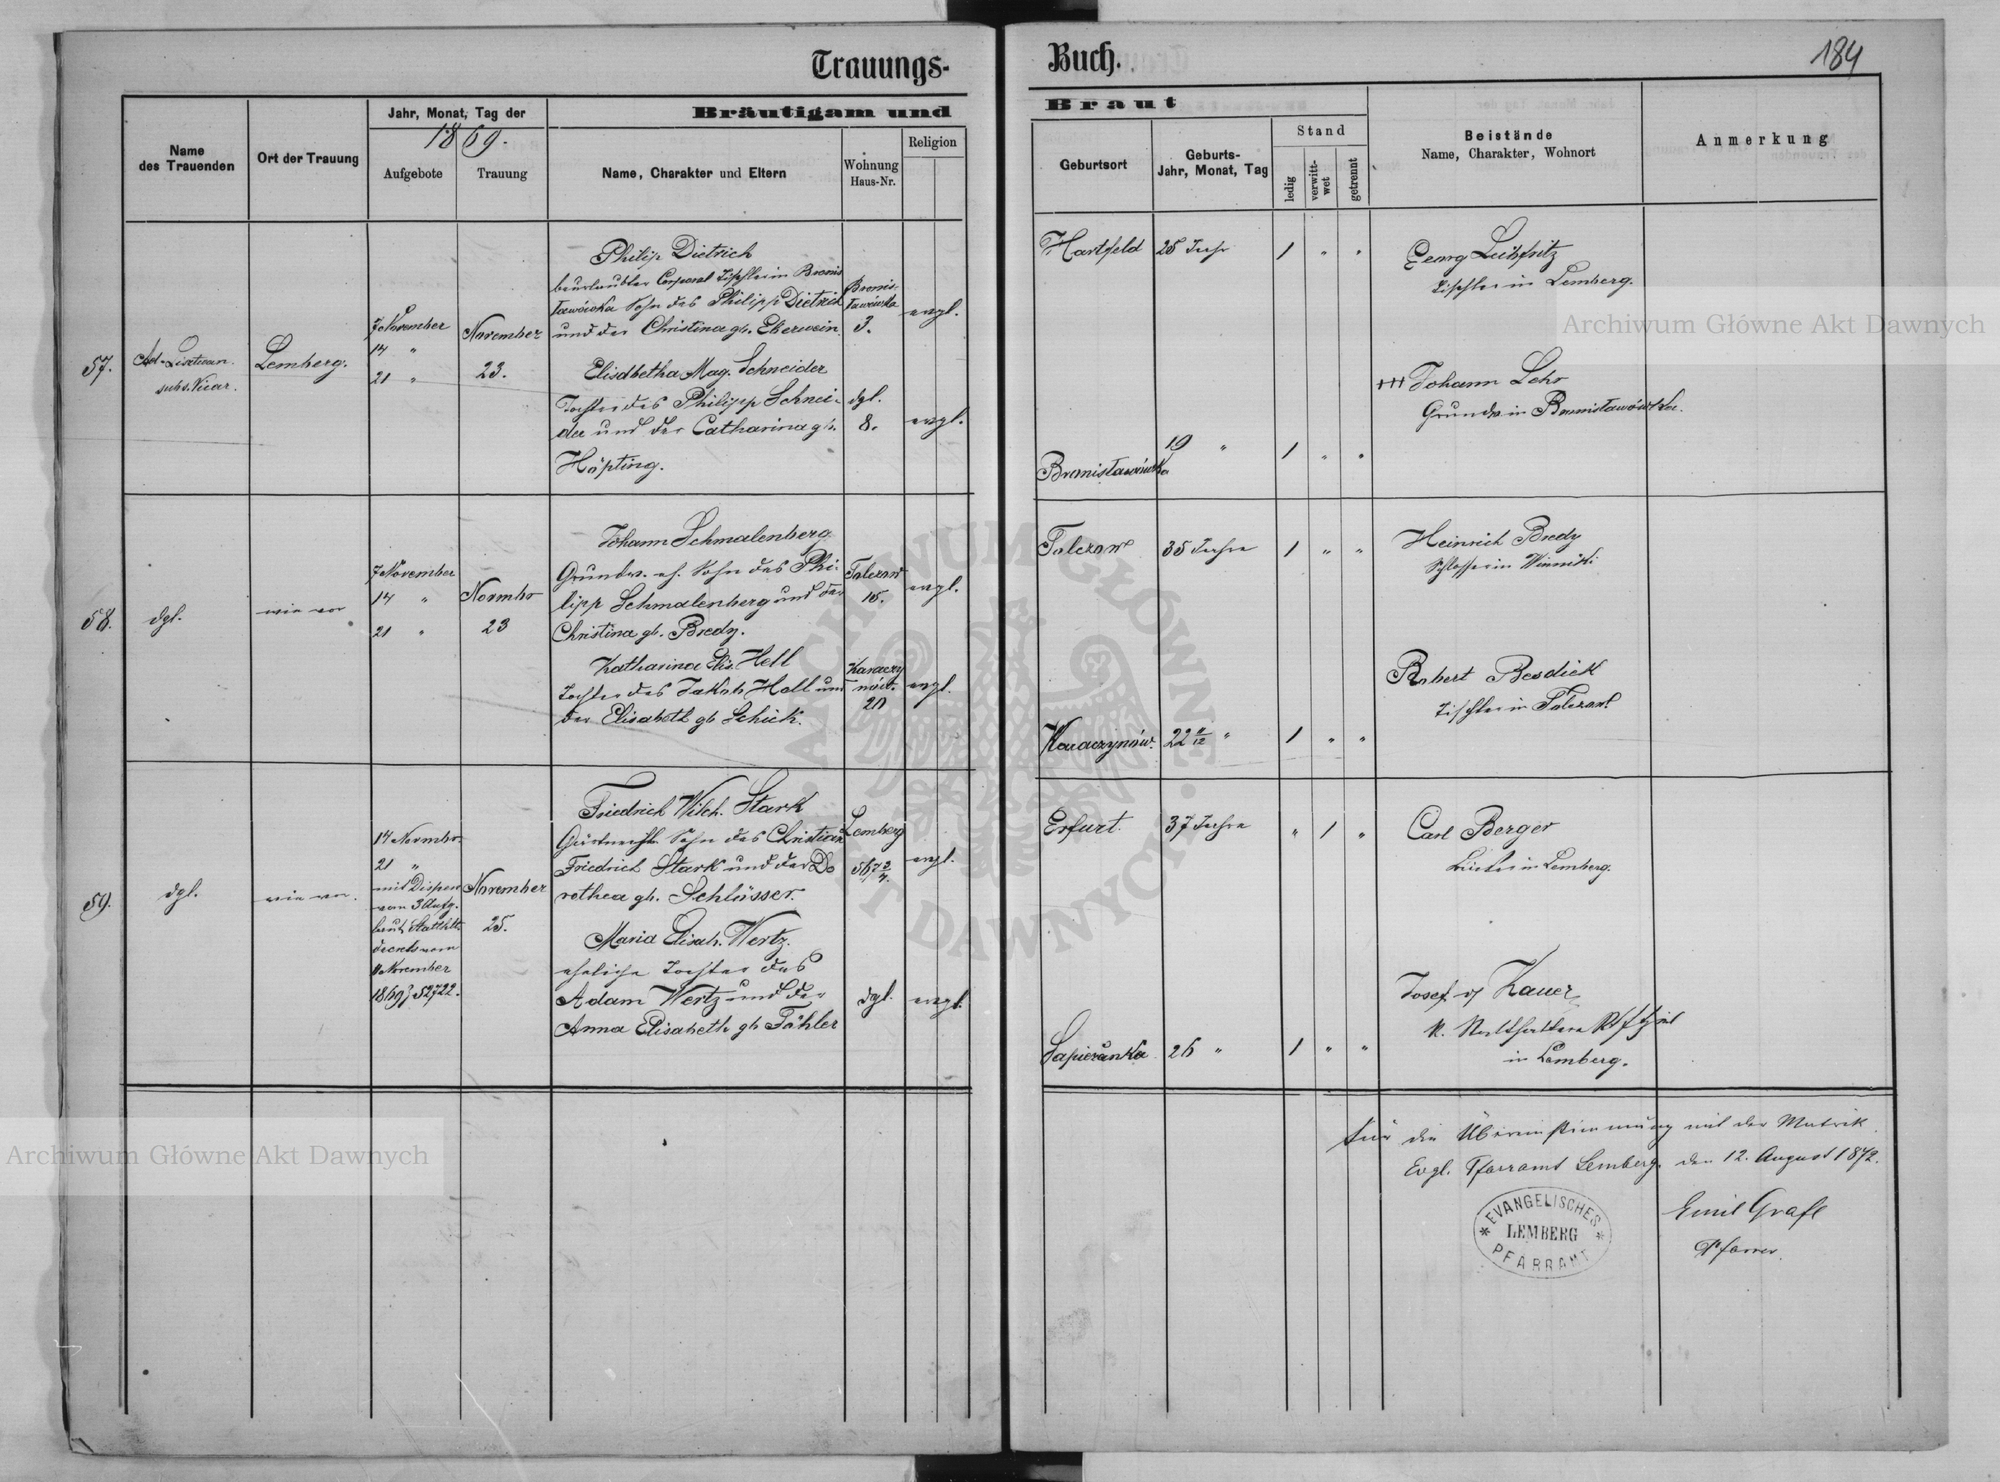 Trauungs-
Buch.
184
Bräutigam und
Braut
Name
des Trauenden
Ort der Trauung
Jahr, Monat, Tag der
1869.
Aufgebote
Trauung
Name, Charakter und Eltern
Wohnung
Haus-Nr.
Religion
Geburtsort
Geburts-
Jahr, Monat, Tag
Stand
ledig
verwitt-
wet
getrennt
Beistände
Name, Charakter, Wohnort
Anmerkung
57.
subs. Vicar.
Lemberg.
7 November
14 "
21 "
November
23.
Philip Dietrich
beurlaubter Corporal Tischler in Bronis
ławówka Sohn des Philipp Dietrich
und der Christina gb. Eberwein.
Bronis-
ławówka
3.
evgl.
Elisabetha Mag. Schneider
Tochter des Philipp Schnei-
der und der Catharina gb.
Höpting.
dgl.
8.
evgl.
Hartfeld
25 Jahr
1 " "
Georg
Tischler in Lemberg.
+++ Johann Lehr
Grundw. in Bronisławówka.
Bronisławówka
19 "
1 " "
58.
dgl.
wie vor
7 November
14 "
21 "
Novmbr
23
Johann Schmalenberg
Grundw. eh. Sohn des Phi-
lipp Schmalenberg und der
Christina gb. Bredy.
15.
evgl.
Katharina Elis. Hell
Tochter des Jakob Hell und
der Elisabeth gb Schick.
Karaczy
nów.
20
evgl.
35 Jahre
1 " "
Heinrich Bredy
Schlosser in Winniki
Robert Besdick
Tischler in
Karaczynów.
22 11/12 "
1 " "
59.
dgl.
wie vor.
14 Novmbr
21 "
mit Dispen
von 3 Aufg.
laut Statth.
decrets vom
November
1869 Z 52722.
November
25.
Friedrich Wilh. Stark
Sohn des Christian
Friedrich Stark und der Do
rothea gb. Schlösser.
Lemberg
567 2/4.
evgl.
Maria Elisab. Wertz.
eheliche Tochter des
Adam Wertz und der
Anna Elisabeth gbFöhler
dgl.
evgl.
Erfurt.
37 Jahre
" 1 "
Carl Berger
in Lemberg.
Josef v. Kauer
k.
in Lemberg.
Sapieżanka
26 "
1 " "
Für die Übereinstimmung mit der Matrik
Evgl. Pfarramt Lemberg, den 12. August 1872.
Emil Grafl
Pfarrer.
* EVANGELISCHES *
LEMBERG
PFARRAMT
Archiwum Główne Akt Dawnych
Archiwum Główne Akt Dawnych
ARCHIWUM GŁÓWNE
AKT DAWNYCH